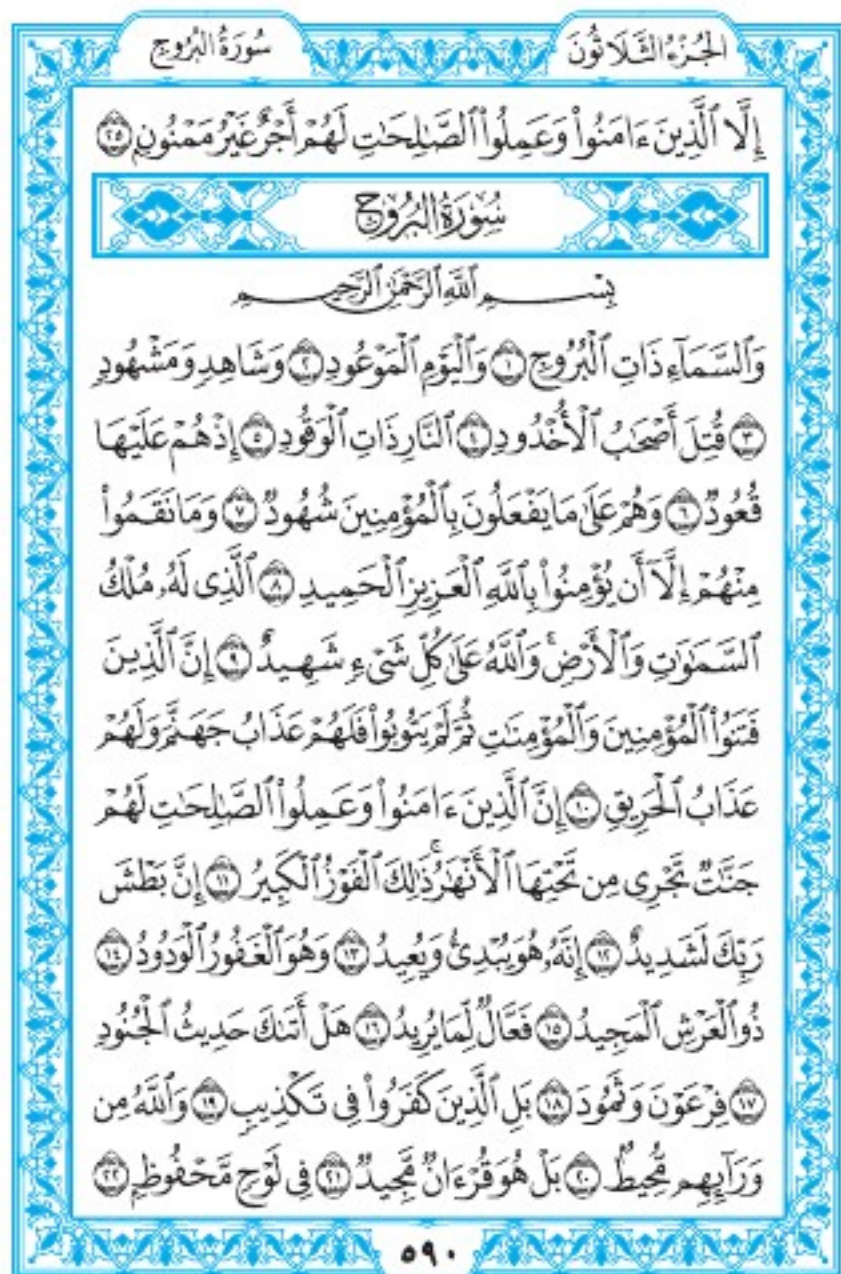 الجُزْءُ الثَّلَاثُونَ
سُورَةُ البُرُوجِ
إِلَّا ٱلَّذِينَ ءَامَنُواْ وَعَمِلُواْ ٱلصَّٰلِحَٰتِ لَهُمۡ أَجۡرٌ غَيۡرُ مَمۡنُونِۭ ٢٥
سُورَةُ البُرُوجِ
بِسۡمِ ٱللَّهِ ٱلرَّحۡمَٰنِ ٱلرَّحِيمِ
وَٱلسَّمَآءِ ذَاتِ ٱلۡبُرُوجِ ١ وَٱلۡيَوۡمِ ٱلۡمَوۡعُودِ ٢ وَشَاهِدٖ وَمَشۡهُودٖ
٣ قُتِلَ أَصۡحَٰبُ ٱلۡأُخۡدُودِ ٤ ٱلنَّارِ ذَاتِ ٱلۡوَقُودِ ٥ إِذۡ هُمۡ عَلَيۡهَا
قُعُودٞ ٦ وَهُمۡ عَلَىٰ مَا يَفۡعَلُونَ بِٱلۡمُؤۡمِنِينَ شُهُودٞ ٧ وَمَا نَقَمُواْ
مِنۡهُمۡ إِلَّآ أَن يُؤۡمِنُواْ بِٱللَّهِ ٱلۡعَزِيزِ ٱلۡحَمِيدِ ٨ ٱلَّذِي لَهُۥ مُلۡكُ
ٱلسَّمَٰوَٰتِ وَٱلۡأَرۡضِۚ وَٱللَّهُ عَلَىٰ كُلِّ شَيۡءٖ شَهِيدٌ ٩ إِنَّ ٱلَّذِينَ
فَتَنُواْ ٱلۡمُؤۡمِنِينَ وَٱلۡمُؤۡمِنَٰتِ ثُمَّ لَمۡ يَتُوبُواْ فَلَهُمۡ عَذَابُ جَهَنَّمَ وَلَهُمۡ
عَذَابُ ٱلۡحَرِيقِ ١٠ إِنَّ ٱلَّذِينَ ءَامَنُواْ وَعَمِلُواْ ٱلصَّٰلِحَٰتِ لَهُمۡ
جَنَّٰتٞ تَجۡرِي مِن تَحۡتِهَا ٱلۡأَنۡهَٰرُۚ ذَٰلِكَ ٱلۡفَوۡزُ ٱلۡكَبِيرُ ١١ إِنَّ بَطۡشَ
رَبِّكَ لَشَدِيدٌ ١٢ إِنَّهُۥ هُوَ يُبۡدِئُ وَيُعِيدُ ١٣ وَهُوَ ٱلۡغَفُورُ ٱلۡوَدُودُ ١٤
ذُو ٱلۡعَرۡشِ ٱلۡمَجِيدُ ١٥ فَعَّالٞ لِّمَا يُرِيدُ ١٦ هَلۡ أَتَىٰكَ حَدِيثُ ٱلۡجُنُودِ
١٧ فِرۡعَوۡنَ وَثَمُودَ ١٨ بَلِ ٱلَّذِينَ كَفَرُواْ فِي تَكۡذِيبٖ ١٩ وَٱللَّهُ مِن
وَرَآئِهِم مُّحِيطُۢ ٢٠ بَلۡ هُوَ قُرۡءَانٞ مَّجِيدٞ ٢١ فِي لَوۡحٖ مَّحۡفُوظِۭ ٢٢
٥٩٠